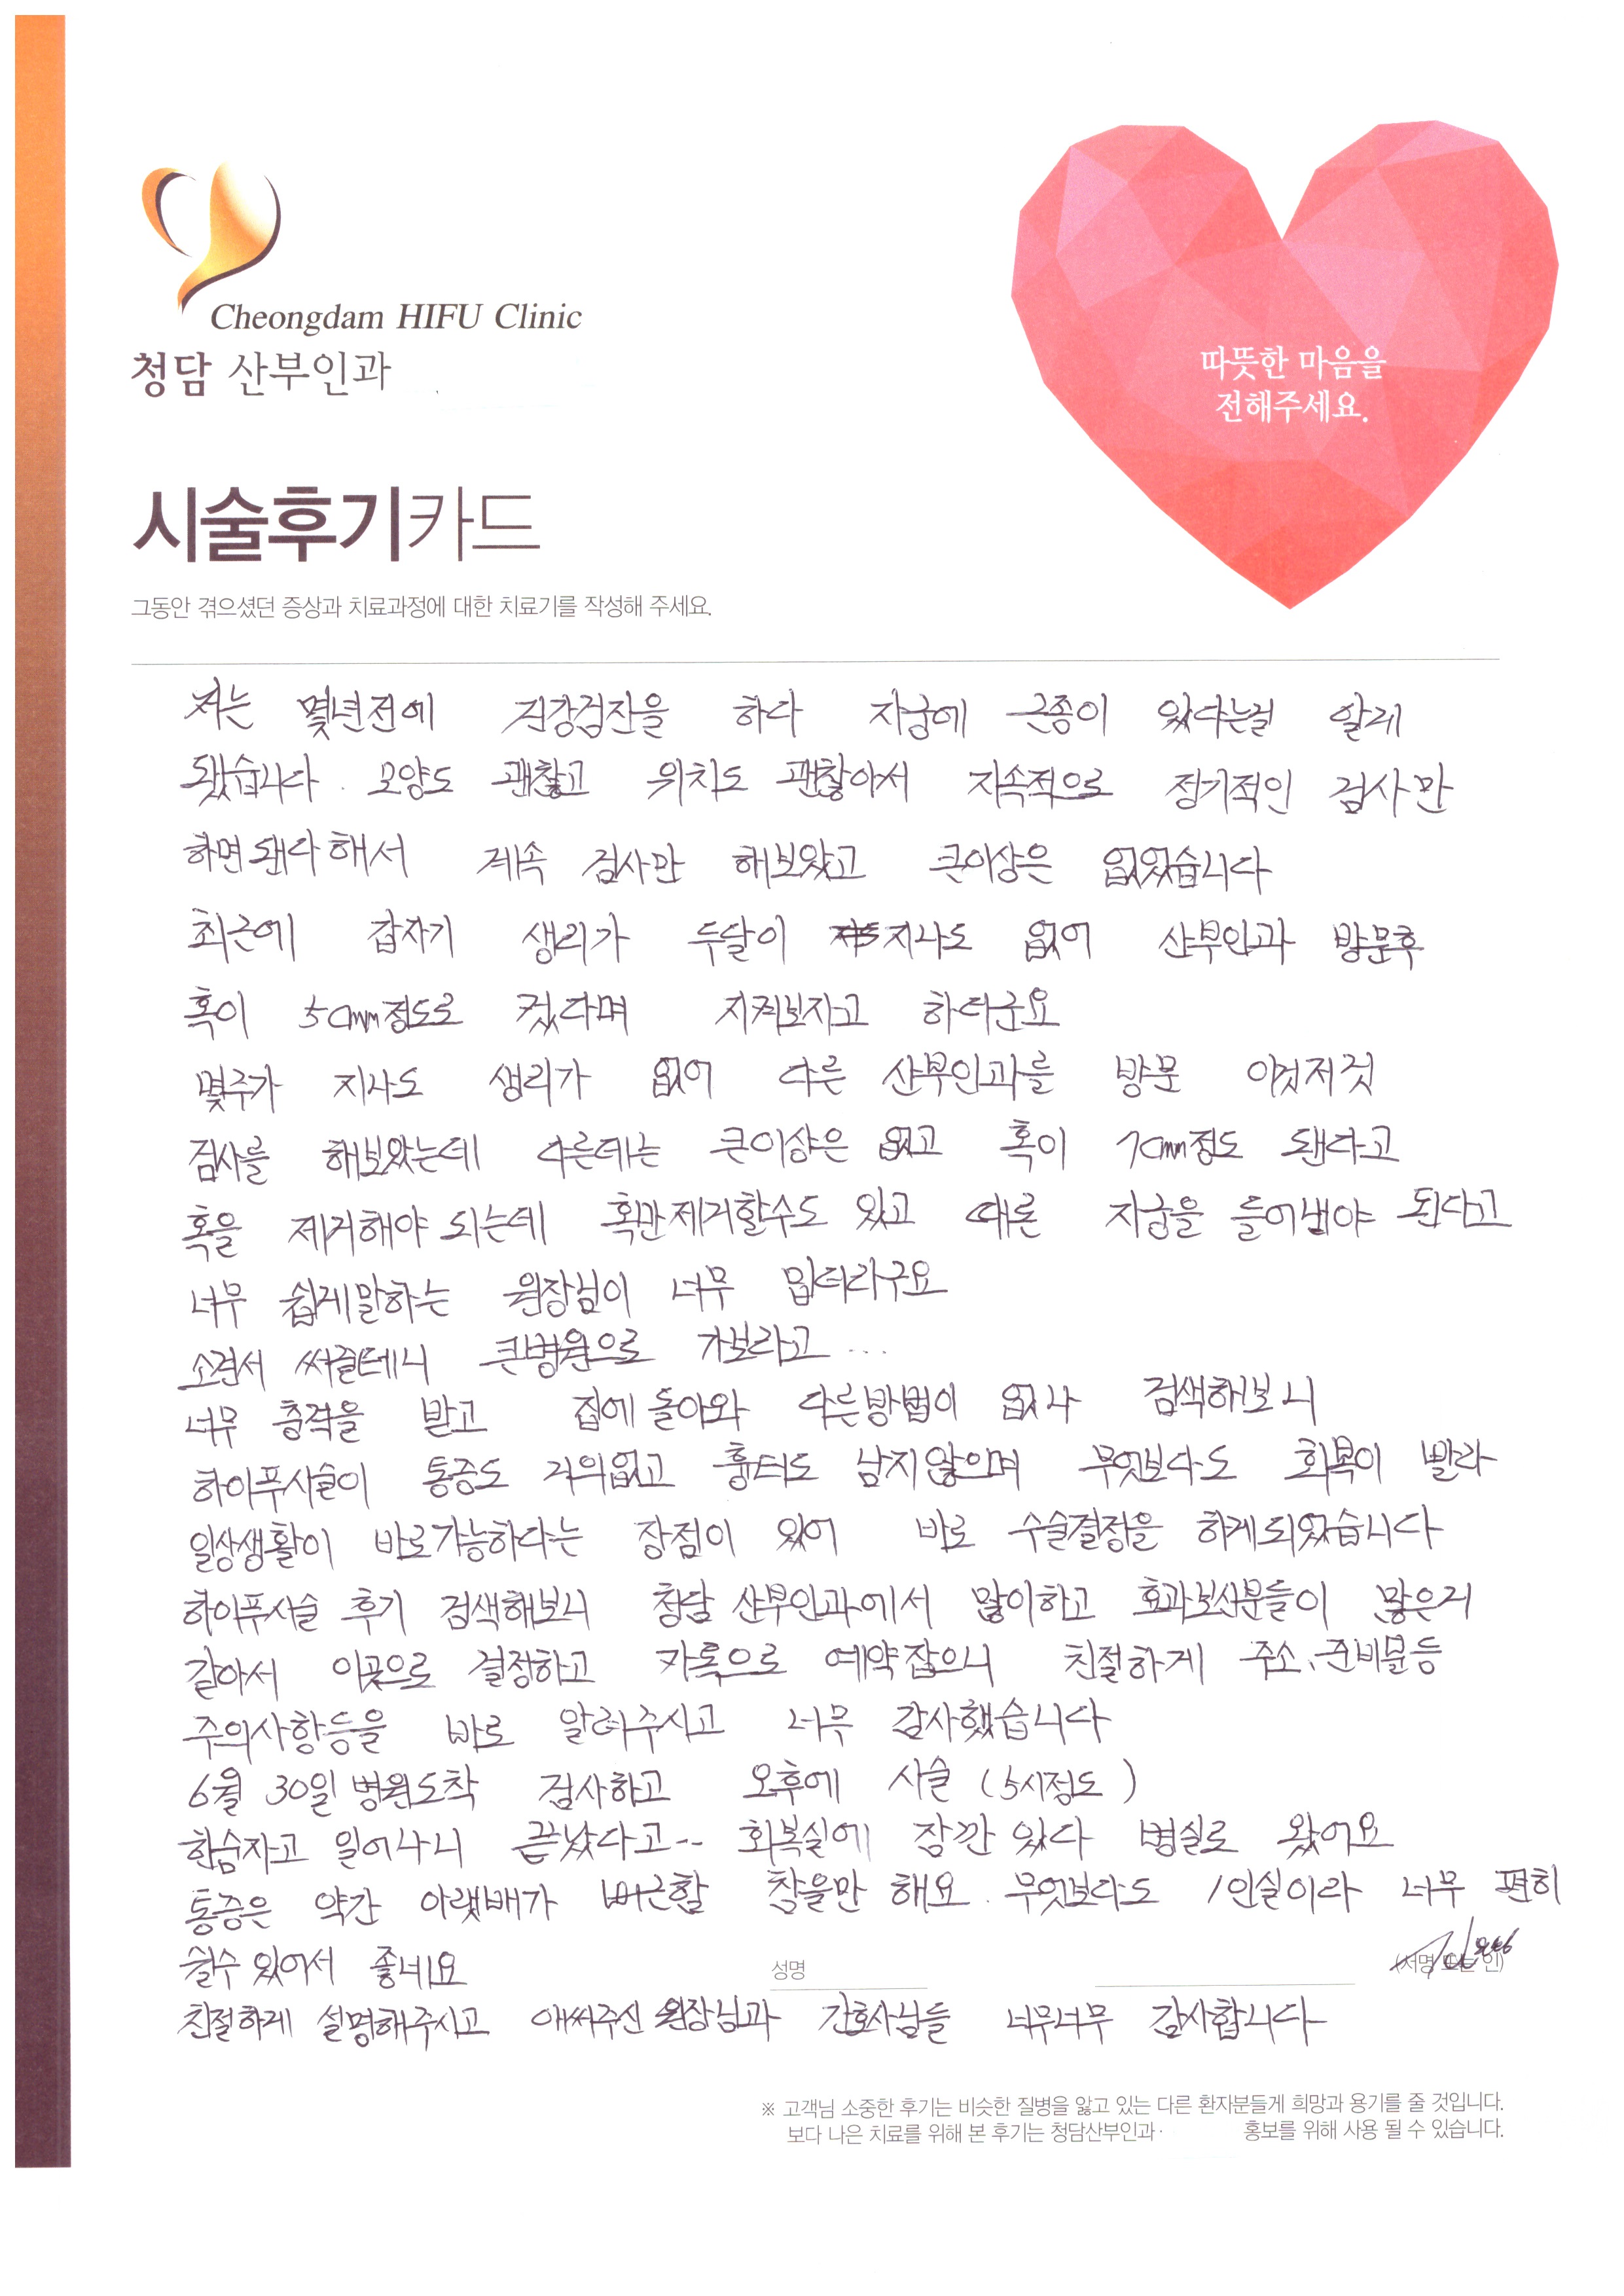 Cheongdam HIFU Clinic
청담 산부인과
따뜻한 마음을
전해주세요.
시술후기카드
그동안 겪으셨던 증상과 치료과정에 대한 치료기를 작성해 주세요.
저는 몇년전에 건강검진을 하다 자궁에 근종이 있다는걸 알게
됐습니다. 모양도 괜찮고 위치도 괜찮아서 지속적으로 정기적인 검사만
하면 됀다 해서 계속 검사만 해보았고 큰이상은 없었습니다
최근에 갑자기 생리가 두달이 지나도 없어 산부인과 방문후
혹이 5cmm정도로 컸다며 지켜보자고 하더군요
몇주가 지나도 생리가 없어 다른 산부인과를 방문 이것저것
검사를 해보았는데 다른데는 큰이상은 없고 혹이 7cmm정도 됀다고
혹을 제거해야 되는데 혹만제거할수도 있고 때론 자궁을 들어내야 된다고
너무 쉽게말하는 원장님이 너무 밉더라구요
소견서 써줄테니 큰병원으로 가보라고 ...
너무 충격을 받고 집에 돌아와 다른방법이 없나 검색해보니
하이푸시술이 통증도 거의없고 흉터도 남지않으며 무엇보다도 회복이 빨라
일상생활이 바로가능하다는 장점이 있어 바로 수술결정을 하게되었습니다
하이푸시술 후기 검색해보니 청담 산부인과에서 많이하고 효과보신분들이 많은거
같아서 이곳으로 결정하고 카톡으로 예약잡으니 친절하게 주소, 준비물등
주의사항등을 바로 알려주시고 너무 감사했습니다
6월 30일 병원도착 검사하고 오후에 시술 (5시정도)
한숨자고 일어나니 끝났다고.. 회복실에 잠깐 있다 병실로 왔어요
통증은 약간 아랫배가 뻐근함 참을만 해요. 무엇보다도 1인실이라 너무 편히
쉴수 있어서 좋네요
성명 (서명 또는 인)
친절하게 설명해주시고 애써주신 원장님과 간호사님들 너무너무 감사합니다
※ 고객님 소중한 후기는 비슷한 질병을 앓고 있는 다른 환자분들게 희망과 용기를 줄 것입니다.
보다 나은 치료를 위해 본 후기는 청담산부인과· 홍보를 위해 사용 될 수 있습니다.